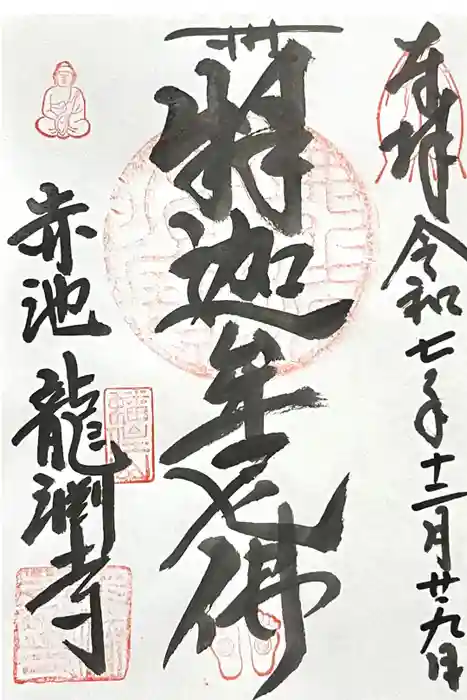 奉拝
令和七年十二月廿九日
釋迦牟尼佛
赤池
龍淵寺